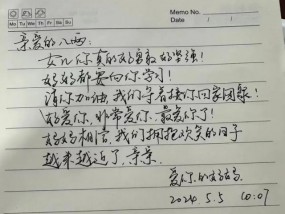 Memo No.
Mo Tu We Th Fr Sa Su
Date / /
亲爱的八两:
女儿你真的好勇敢好坚强!
妈妈都要向你学习!
请你加油,我们等着接你回家团聚!
好爱你,非常爱你,最爱你了!
妈妈相信,我们拥抱欢笑的日子
越来越近了,亲亲。
爱你的妈妈
2024.5.5 10:07